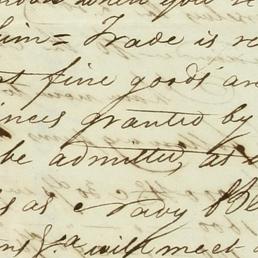 when you
um = Trade is re
t fine goods an
inces granted by
be admitted, at
s as a Navy
will meet a